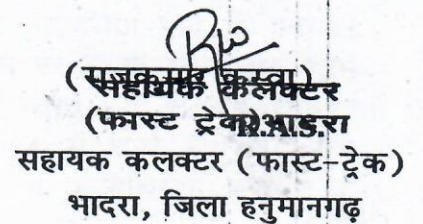 (राजकुमार कस्वा)
सहायक कलक्टर
(फास्ट ट्रेक) भादरा
R.A.S.
सहायक कलक्टर (फास्ट-ट्रेक)
भादरा, जिला हनुमानगढ़